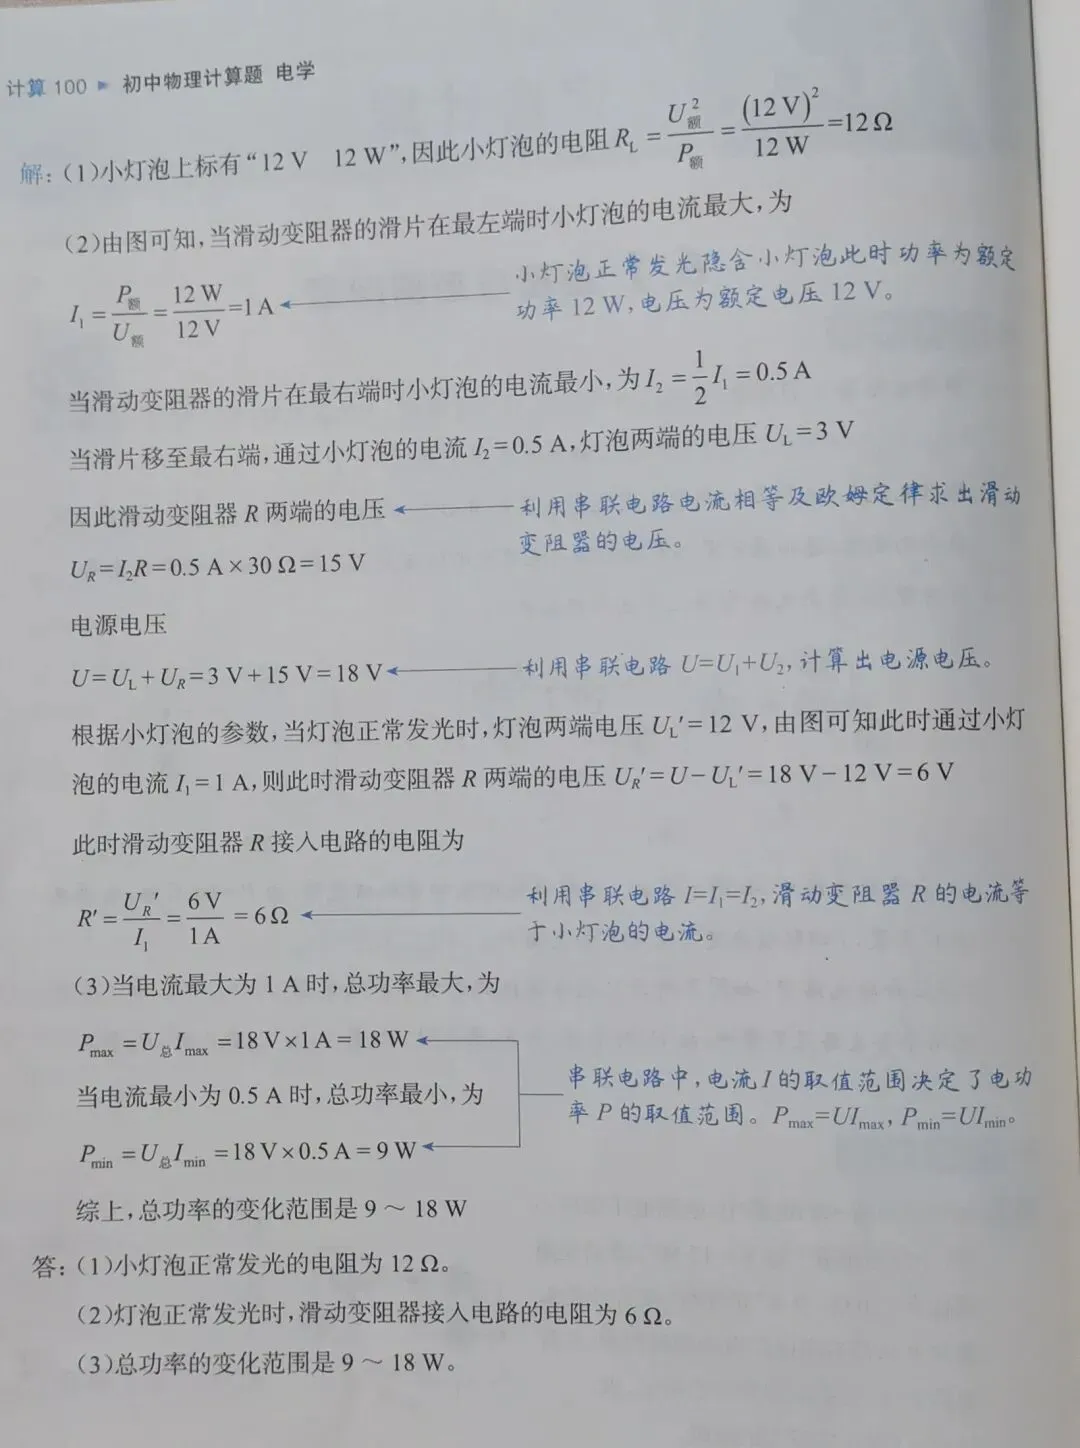 计算 100 ▶ 初中物理计算题 电学
解：(1)小灯泡上标有“12 V 12 W”，因此小灯泡的电阻 R_L = U额²/P额 = (12 V)²/12 W =12 Ω
(2)由图可知，当滑动变阻器的滑片在最左端时小灯泡的电流最大，为
I₁ = P额/U额 = 12 W/12 V =1 A
小灯泡正常发光隐含小灯泡此时功率为额定
功率 12 W，电压为额定电压 12 V。
当滑动变阻器的滑片在最右端时小灯泡的电流最小，为 I₂ = 1/2 I₁ = 0.5 A
当滑片移至最右端，通过小灯泡的电流 I₂=0.5 A，灯泡两端的电压 U_L=3 V
因此滑动变阻器 R 两端的电压
利用串联电路电流相等及欧姆定律求出滑动
变阻器的电压。
U_R=I₂R=0.5 A×30 Ω=15 V
电源电压
U=U_L+U_R=3 V+15 V=18 V
利用串联电路 U=U₁+U₂，计算出电源电压。
根据小灯泡的参数，当灯泡正常发光时，灯泡两端电压 U_L′=12 V，由图可知此时通过小灯
泡的电流 I₁=1 A，则此时滑动变阻器 R 两端的电压 U_R′=U−U_L′=18 V−12 V=6 V
此时滑动变阻器 R 接入电路的电阻为
R′= U_R′/I₁ = 6 V/1 A = 6 Ω
利用串联电路 I=I₁=I₂，滑动变阻器 R 的电流等
于小灯泡的电流。
(3)当电流最大为 1 A 时，总功率最大，为
P_max =U总I_max =18 V×1 A=18 W
当电流最小为 0.5 A 时，总功率最小，为
串联电路中，电流 I 的取值范围决定了电功
率 P 的取值范围。P_max=UI_max，P_min=UI_min。
P_min =U总I_min =18 V×0.5 A=9 W
综上，总功率的变化范围是 9 ～ 18 W
答：(1)小灯泡正常发光的电阻为 12 Ω。
(2)灯泡正常发光时，滑动变阻器接入电路的电阻为 6 Ω。
(3)总功率的变化范围是 9 ～ 18 W。